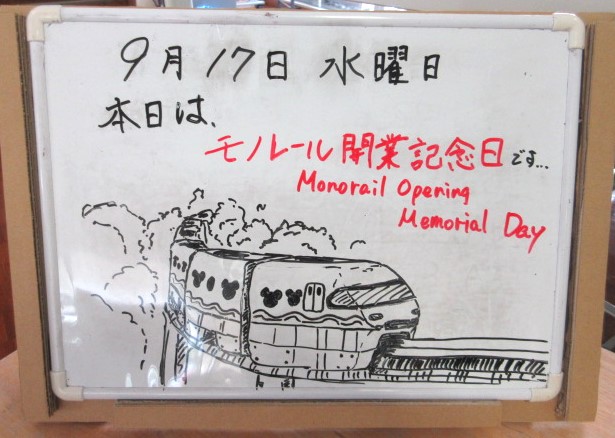 9月17日 水曜日
本日は、
モノレール開業記念日です...
Monorail Opening
Memorial Day